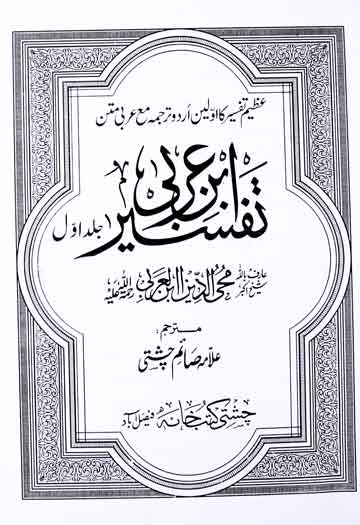 عظیم تفسیر کا اولین اُردو ترجمہ مع عربی متن
تفسیر ابنِ عربی
جلد اوّل
عارف باللہ شیخ اکبر محی الدین ابن العربی رحمۃ اللہ علیہ
مترجم:
علامہ صائم چشتی
چشتی کتب خانہ فیصل آباد